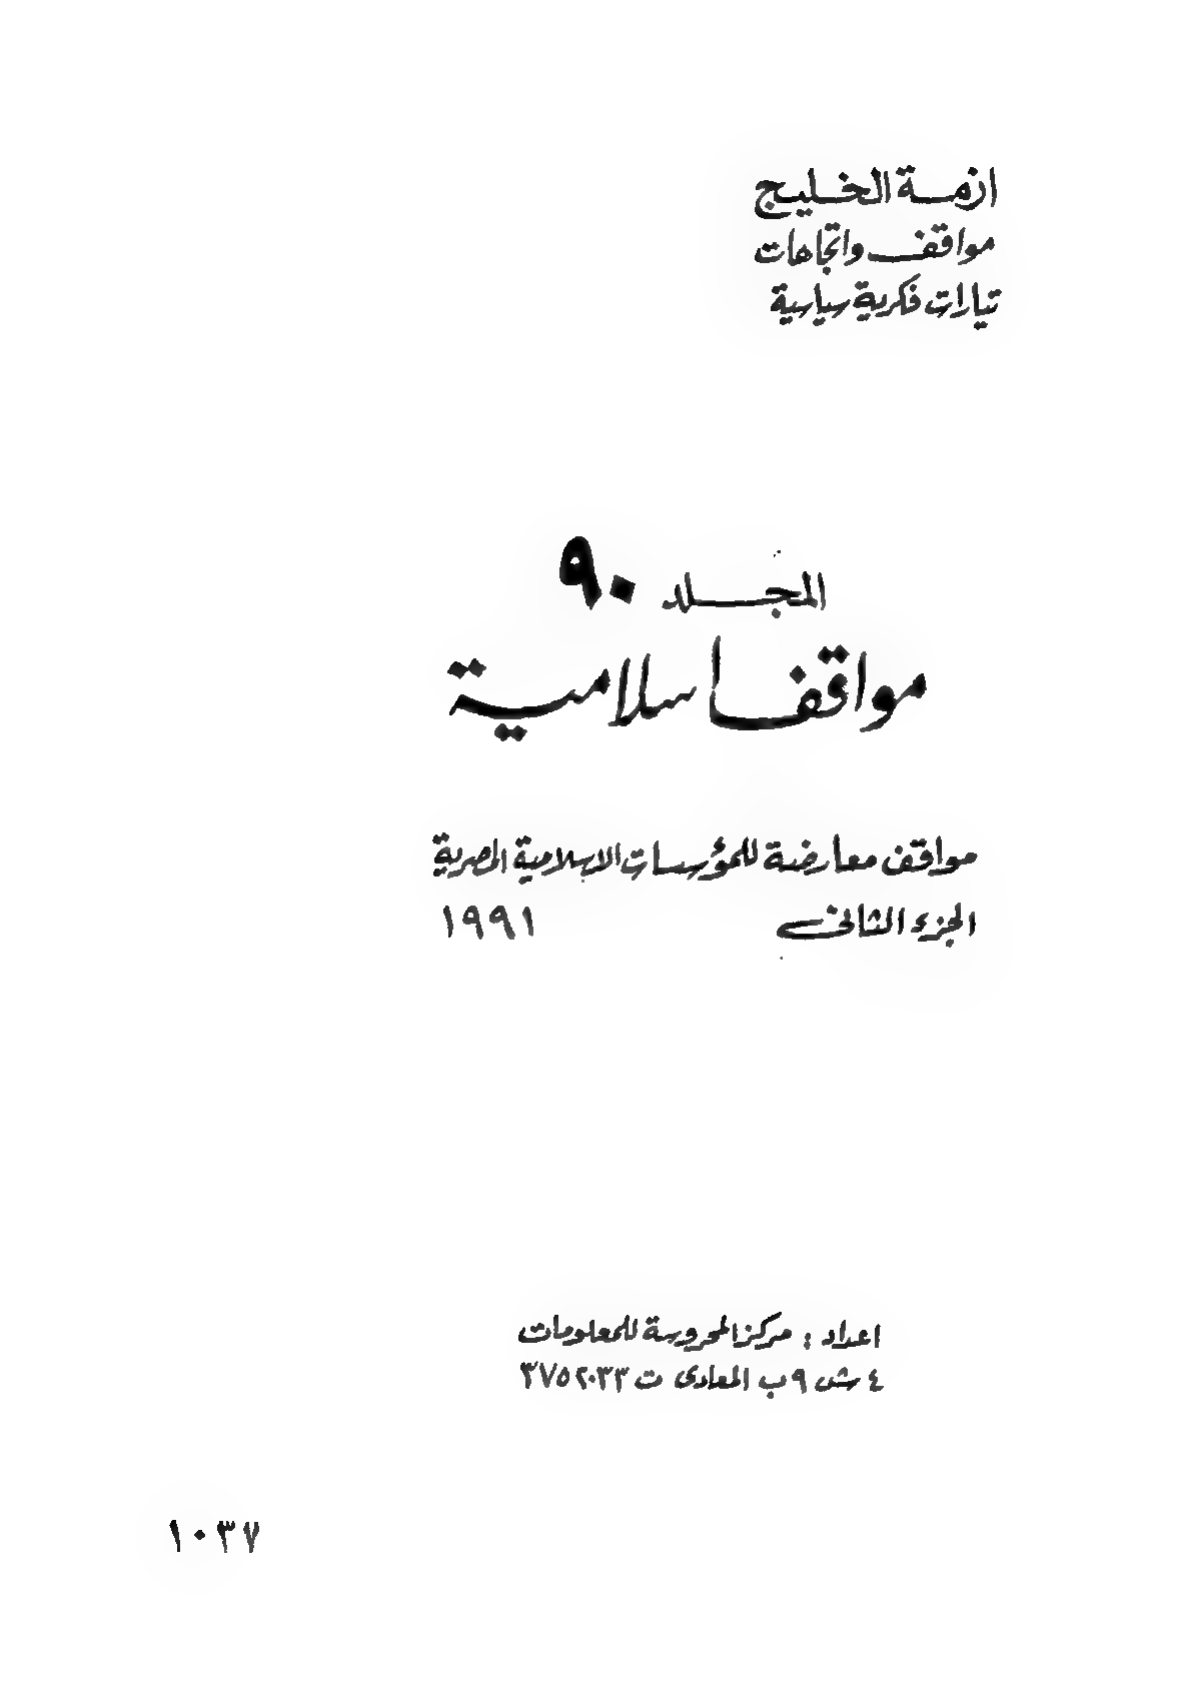 ازمة الخليج
مواقف واتجاهات
تيارات فكرية سياسية
المجلد ٩٠
مواقف اسلامية
مواقف معارضة للمؤسسات الاسلامية المصرية
الجزء الثانى ١٩٩١
اعداد : مركز المحروسة للمعلومات
٤ ش ٩ ب المعادى ت ٣٧٥٢٠٣٣
١٠٣٧